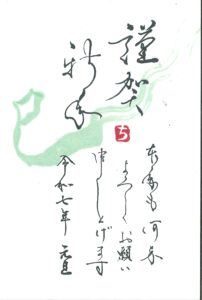 謹賀
新年
ち
本年も何卒
よろしくお願い
申し上げます
令和七年 元旦